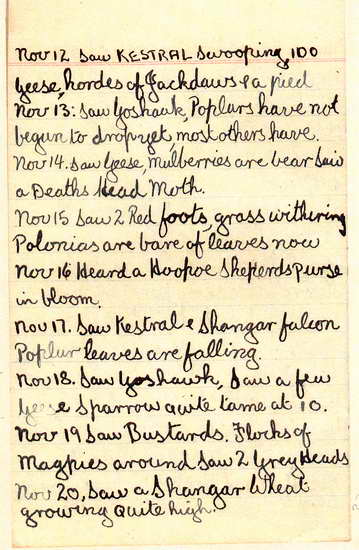 Nov 12 Saw KESTRAL Swooping, 100
geese, hordes of Jackdaws & a pied
Nov 13: Saw Goshauk, Poplurs have not
begun to drop yet, most others have.
Nov 14. Saw geese, mulberries are bear Saw
a Deaths Head Moth.
Nov 15 Saw 2 Red foots, grass withiring
Polonias are bare of leaves now
Nov 16 Heard a Hoopoe Sheperds purse
in bloom.
Nov 17. Saw Kestral & Shangar falcon
Poplur leaves are falling.
Nov 18. Saw Goshawk, Saw a few
geese Sparrow quite tame at 10.
Nov 19 Saw Bustards. Flocks of
Magpies around Saw 2 Grey Heads
Nov 20, Saw a Shangar Wheat
growing quite high.